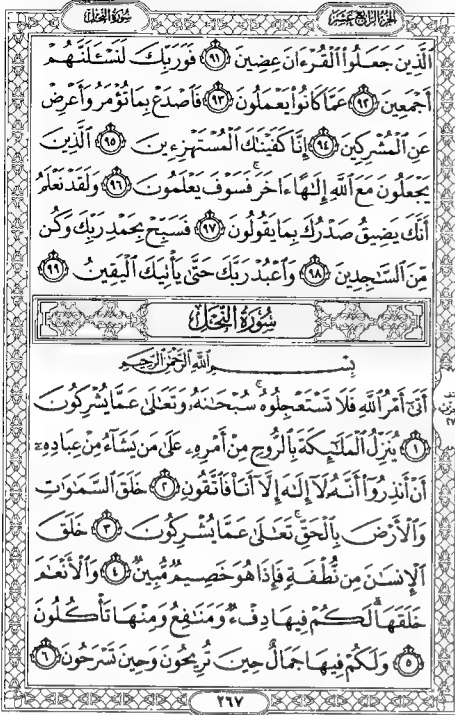 سُورَةُ النَّحْلِ
الجُزْءُ الرَّابِعُ عَشَرَ
ٱلَّذِينَ جَعَلُوا۟ ٱلْقُرْءَانَ عِضِينَ ٩١ فَوَرَبِّكَ لَنَسْـَٔلَنَّهُمْ
أَجْمَعِينَ ٩٢ عَمَّا كَانُوا۟ يَعْمَلُونَ ٩٣ فَٱصْدَعْ بِمَا تُؤْمَرُ وَأَعْرِضْ
عَنِ ٱلْمُشْرِكِينَ ٩٤ إِنَّا كَفَيْنَـٰكَ ٱلْمُسْتَهْزِءِينَ ٩٥ ٱلَّذِينَ
يَجْعَلُونَ مَعَ ٱللَّهِ إِلَـٰهًا ءَاخَرَ ۚ فَسَوْفَ يَعْلَمُونَ ٩٦ وَلَقَدْ نَعْلَمُ
أَنَّكَ يَضِيقُ صَدْرُكَ بِمَا يَقُولُونَ ٩٧ فَسَبِّحْ بِحَمْدِ رَبِّكَ وَكُن
مِّنَ ٱلسَّـٰجِدِينَ ٩٨ وَٱعْبُدْ رَبَّكَ حَتَّىٰ يَأْتِيَكَ ٱلْيَقِينُ ٩٩
سُورَةُ النَّحْلِ
بِسْمِ ٱللَّهِ ٱلرَّحْمَـٰنِ ٱلرَّحِيمِ
أَتَىٰٓ أَمْرُ ٱللَّهِ فَلَا تَسْتَعْجِلُوهُ ۚ سُبْحَـٰنَهُۥ وَتَعَـٰلَىٰ عَمَّا يُشْرِكُونَ
١ يُنَزِّلُ ٱلْمَلَـٰٓئِكَةَ بِٱلرُّوحِ مِنْ أَمْرِهِۦ عَلَىٰ مَن يَشَآءُ مِنْ عِبَادِهِۦٓ
أَنْ أَنذِرُوٓا۟ أَنَّهُۥ لَآ إِلَـٰهَ إِلَّآ أَنَا۠ فَٱتَّقُونِ ٢ خَلَقَ ٱلسَّمَـٰوَٰتِ
وَٱلْأَرْضَ بِٱلْحَقِّ ۚ تَعَـٰلَىٰ عَمَّا يُشْرِكُونَ ٣ خَلَقَ
ٱلْإِنسَـٰنَ مِن نُّطْفَةٍ فَإِذَا هُوَ خَصِيمٌ مُّبِينٌ ٤ وَٱلْأَنْعَـٰمَ
خَلَقَهَا ۗ لَكُمْ فِيهَا دِفْءٌ وَمَنَـٰفِعُ وَمِنْهَا تَأْكُلُونَ
٥ وَلَكُمْ فِيهَا جَمَالٌ حِينَ تُرِيحُونَ وَحِينَ تَسْرَحُونَ ٦
٢٦٧